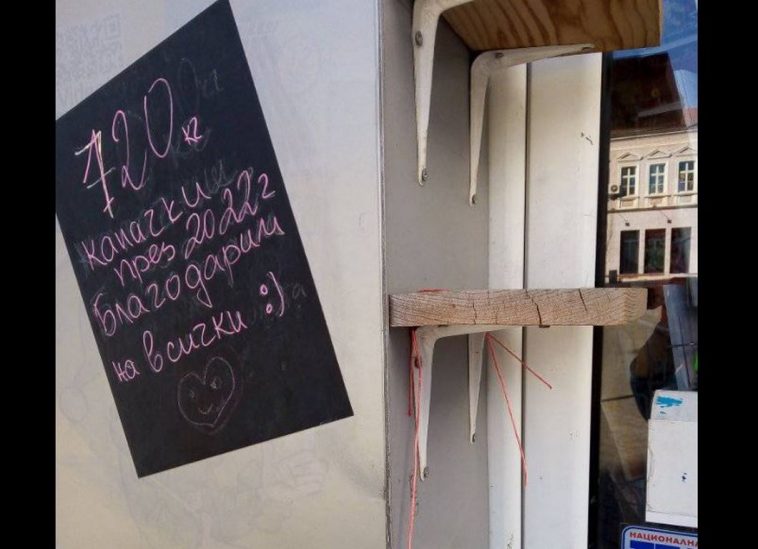 720 кг
капачки
през 2022г
Благодарим
на всички :)
НАЦИОНАЛНА